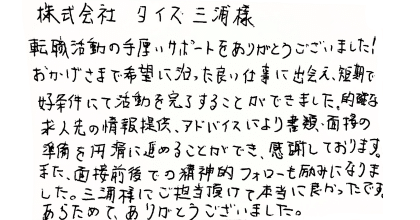 株式会社 タイズ 三浦様
転職活動の手厚いサポートをありがとうございました!
おかげさまで希望に沿った良い仕事に出会え、短期で
好条件にて活動を完了することができました。的確な
求人先の情報提供、アドバイスにより書類・面接の
準備を円滑に進めることができ、感謝しております。
また、面接前後での精神的フォローも励みになりま
した。三浦様にご担当頂けて本当に良かったです。
あらためて、ありがとうございました。